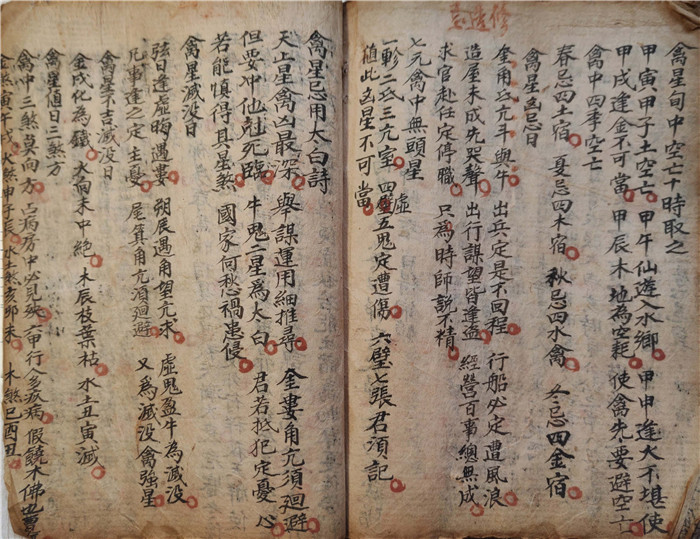 禽星旬中空亡十時取之
甲寅甲子土空亡 甲午仙遊入水鄉 甲申逢火不堪使
甲戌逢金不可當 甲辰木地為空耗 使禽先要避空亡
禽中四季空亡
春忌四土宿 夏忌四木宿 秋忌四水禽 冬忌四金宿
禽星凶忌日
奎角亢斗與牛 出兵定是不回程 行船必定遭風浪
造屋未成先哭聲 出行謀望皆逢盗 經營百事總無成
求官赴任定停職 只為時師説不精
七元禽中無頭星
一軫二氐三元室 四虛五鬼定遭傷 六壁七張君須記
值此凶星不可當
禽星忌用太白詩
天上星禽凶最深 舉謀運用細推尋 奎婁角亢須廻避
但要冲他尅死臨 牛鬼二星為太白 君若抵犯定憂心
若能慎得其星煞 國家何愁禍患侵
禽星滅没日
弦日逢虛晦遇婁 朔辰遇角望亢求 虛鬼盈牛為滅没
凡事逢之定主憂 尾箕角亢須廻避 又為滅没禽強星
禽星不吉滅没日
金戌化為鐵 火酉未中絶 木辰枝葉枯 水土丑寅滅
禽星值日三煞方
禽中三煞莫向方 占病方中必見殃 六甲行人多疾病 假饒木佛也
金煞寅午戌 火煞申子辰 水土煞亥卯未 木煞巳酉丑